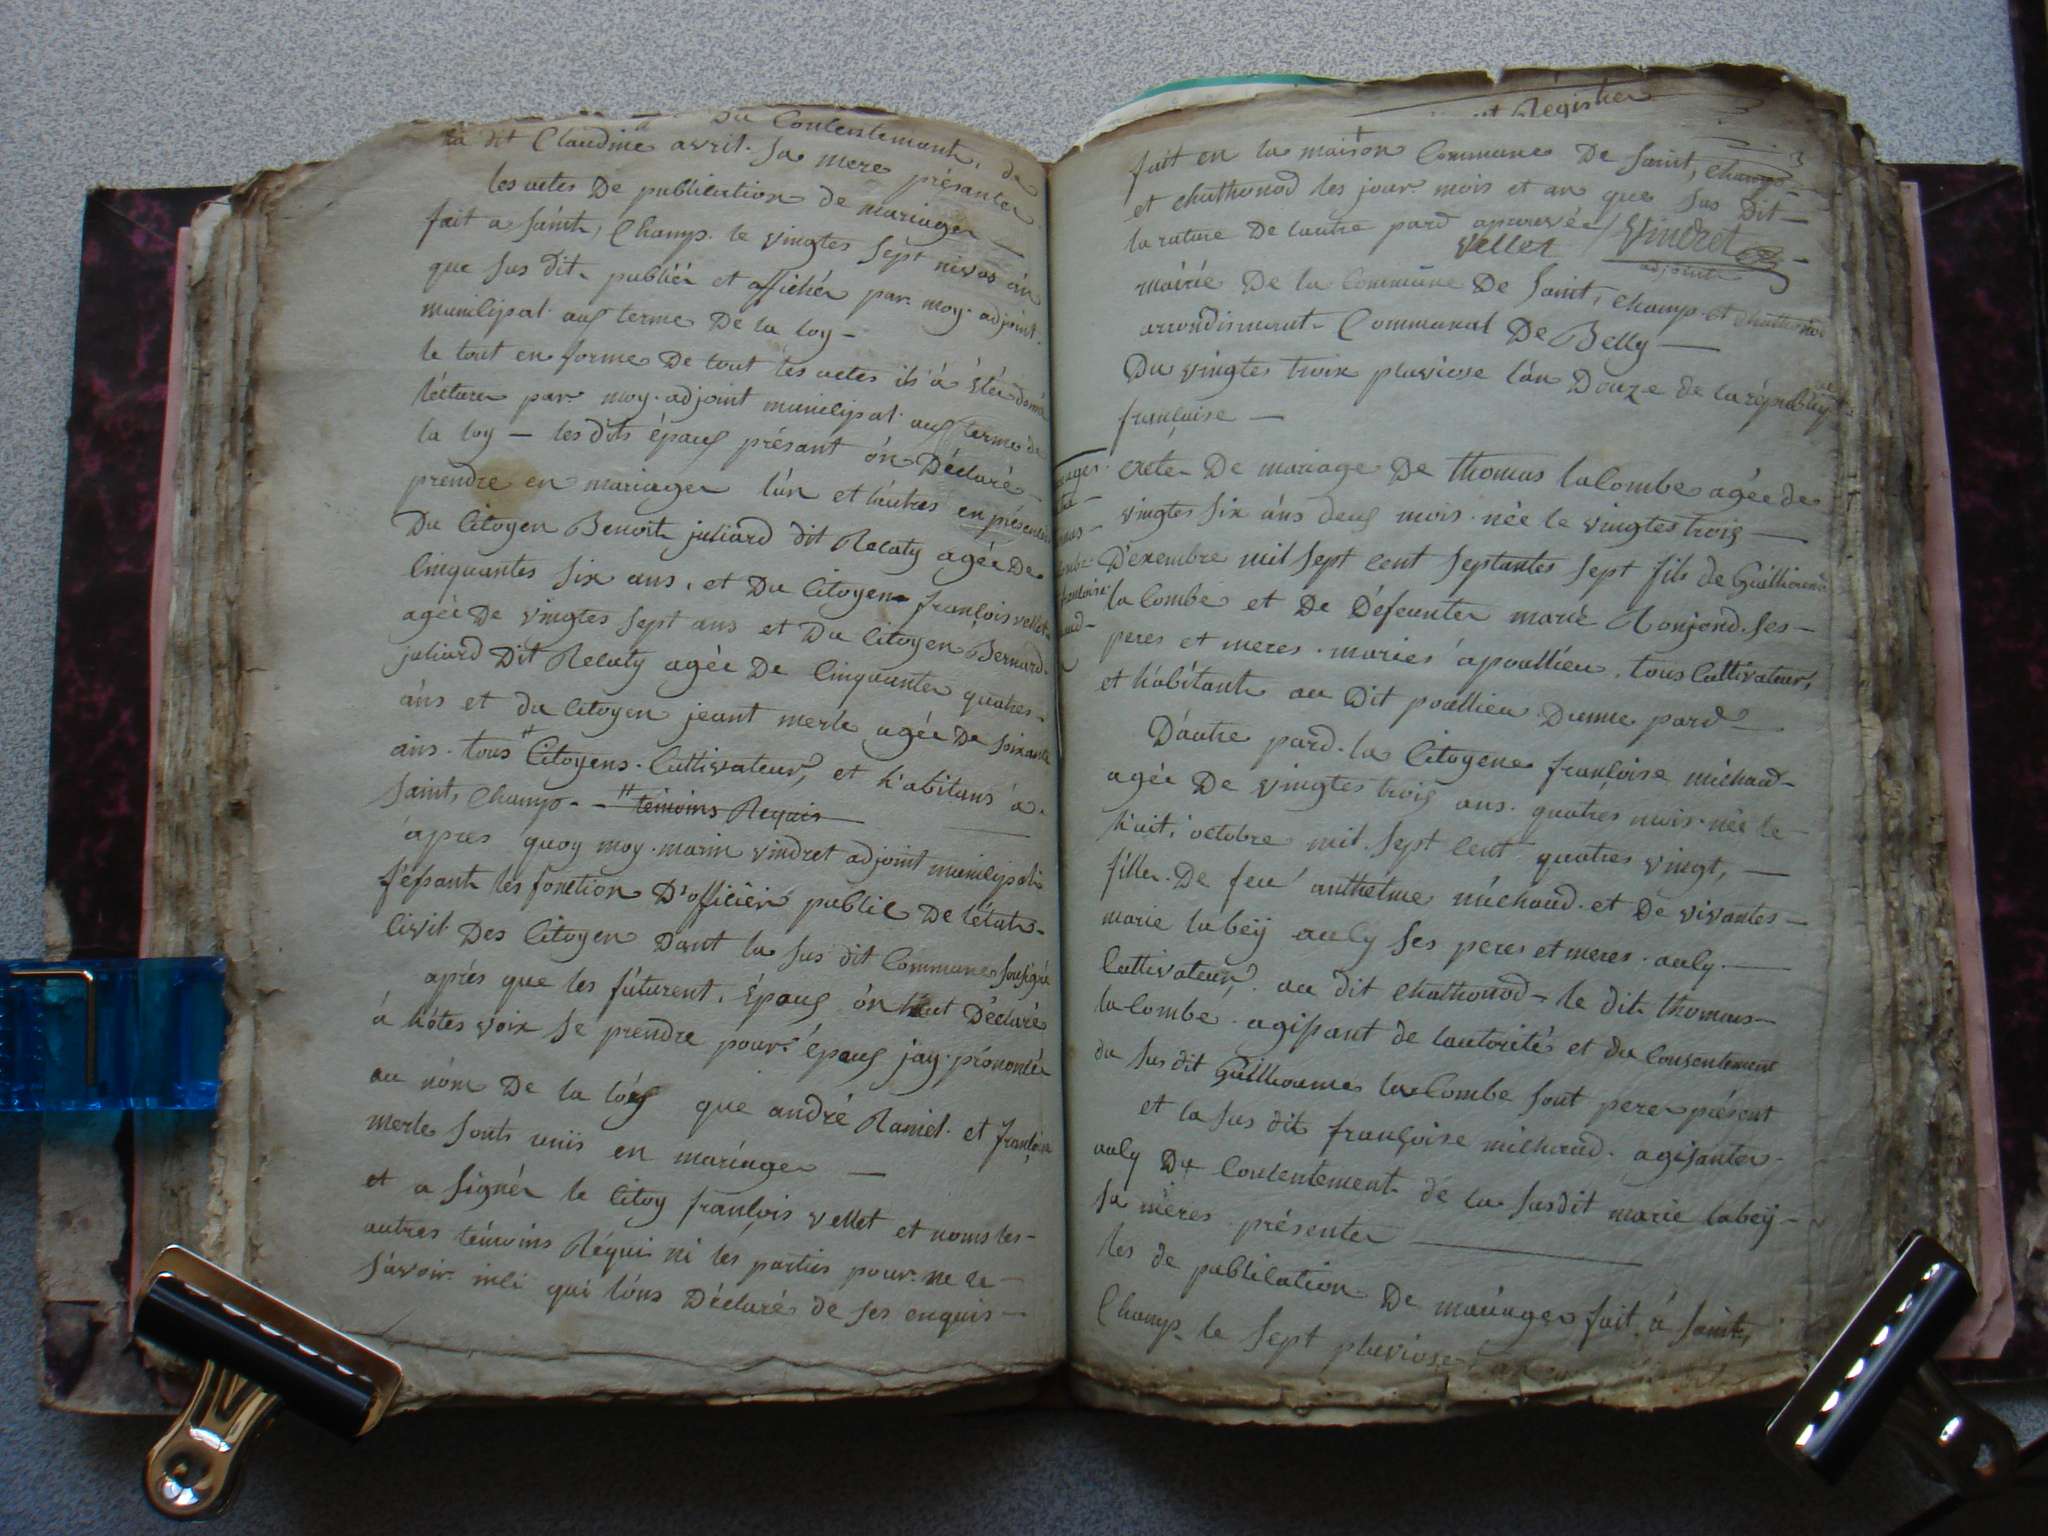 Du Consentement, de
dit Claudine avril. Sa mere présenter
les actes De publication de mariager
fait a Saint, Champ. le vingtes Sept nivos án
que Sus dit publiér et affichér par moy. adjoint.
municipal aux terme De la loy —
le tout en forme De tout les actes ils á étér donné
lécturer par moy. adjoint municipal aux terme de
la loy — les dits épaux présant ón Déclaré —
prendre en mariager lún et hautres en présence
Du Citoyen Benoit juliard dit Recaty agée De
Cinquantes Six ans, et Du Citoyen françois vellet
agée De vingtes Sept ans et Du Citoyen Bernard
juliard Dit Recaty agée De Cinquanter quatres
áns et du Citoyen jeant merle agée De Soixante
ans. tous Citoyens. Cultivateur, et h'abitans á
Saint, Champ — témoins Requis
ápres quoy moy. marin vindret adjoint municipal
féssant les fonction D'officiér public De létat
Civil Des Citoyen Dant la Sus dit Commune Sousigné
aprés que les fúturent, Épaux ón haut Déclaré
á hótes voix Se prendre pour épaux jay prónoncér
au nóm De la lóy que andré Ramel. et françoise
merle Sonts uniis en máriager —
et a Signér le Citoy françois vellet et noms les
autres témoins Réquis ni lés partiés pour ne le
Sávoir inli qui lóns Déclaré de Ses enquis —
Register
fait en la maison Commune De Saint, Champ
et Chathonod les jour mois et an que Sus Dit —
la rature De lautre pard aprouvée Vindret
vellet adjoint
mairie De la Commune De Saint, Champ. et Chathonod
arrondisment Communal De Belly —
Du vingtes troix pluviose lán Douze de la républiq
françoise —
Acte De mariage De thomas laCombe agée de
vingtes Six áns deux mois. née le vingtes trois —
Dexembre mil Sept Cent Septantes Sept fils de Guilliaume
la Combe et De Défeunter marie Ronjond. Ses —
peres et meres. mariés á poullieu, tous Cultivateur,
et hábitant au Dit poullieu Dunne pard
Dáutre pard. la Citoyene françoise michaud
agée De vingtes trois ans. quatrés mois. née le
huit, octobre mil. Sept Cent quatres vingt, —
filler. De feu anthelme michaud. et De vivantes —
marie labeÿ auly Ses peres et meres. auly. —
Cultivateur, au dit Chathonod — le dit thomas —
la Combe. agissant de lautorité et du Consentement
du Sus dit Guilliaumes la Combe Sont pere présent
et la Sus dit françoise michaud. agisanter
auly Du Contentement de la Susdit marie labeÿ —
Sa mères présenter —
les de publication De mariager fait á Saint,
Champ. le Sept pluviose